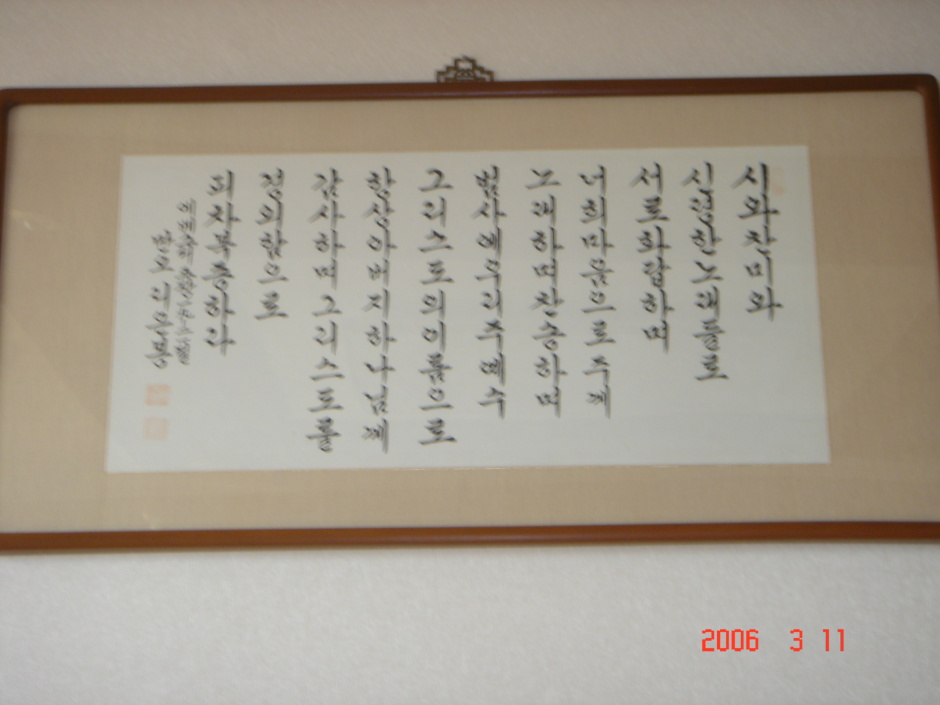 시와찬미와
신령한노래들로
서로화답하며
너희마음으로주께
노래하며찬송하며
범사에우리주예수
그리스도의이름으로
항상아버지하나님께
감사하며그리스도를
경외함으로
피차복종하라
2006 3 11